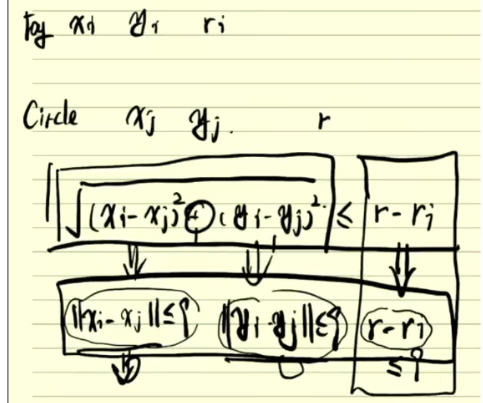 Toy xi yi ri
Circle xj yj. r
√(xi-xj)² + (yi-yj)² ≤ r-ri
||xi-xj|| ≤ ||yi-yj|| ≤ r-ri
≤